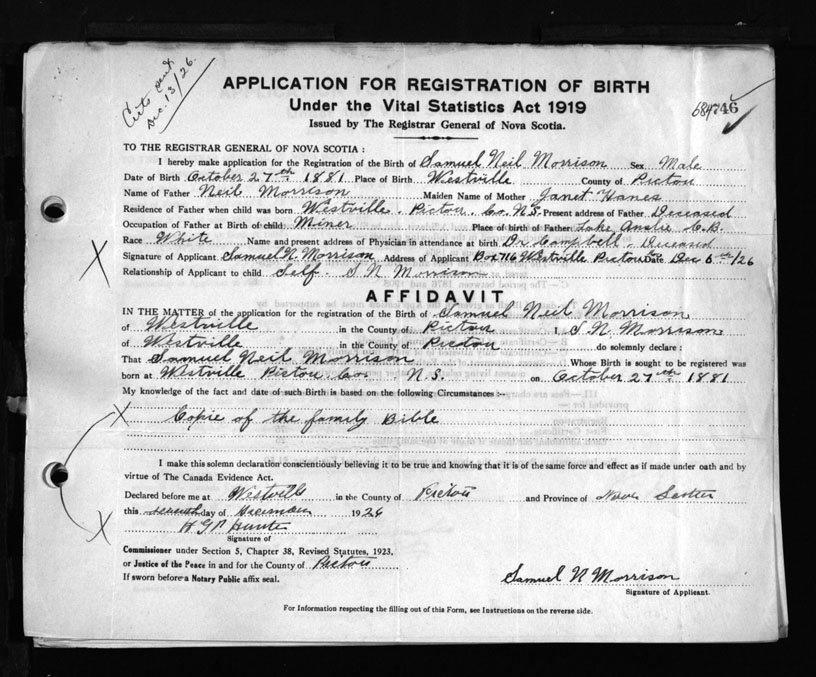 Certs sent
Dec. 13/26.
APPLICATION FOR REGISTRATION OF BIRTH
Under the Vital Statistics Act 1919
684746
Issued by The Registrar General of Nova Scotia.
TO THE REGISTRAR GENERAL OF NOVA SCOTIA :
I hereby make application for the Registration of the Birth of Samuel Neil Morrison Sex Male
Date of Birth October 27th 1881 Place of Birth Westville County of Pictou
Name of Father Neil Morrison Maiden Name of Mother Janet Hanes
Residence of Father when child was born Westville. Pictou. Co. N.S. Present address of Father Deceased
Occupation of Father at Birth of child: Miner Place of birth of Father: Lake Ainslie C.B.
Race White Name and present address of Physician in attendance at birth Dr Campbell. Deceased
Signature of Applicant Samuel N. Morrison Address of Applicant Box 716 Westville Pictou Co Date Dec 6th/26
Relationship of Applicant to child Self. S N Morrison
AFFIDAVIT
IN THE MATTER of the application for the registration of the Birth of Samuel Neil Morrison
of Westville in the County of Pictou I, S N Morrison
of Westville in the County of Pictou do solemnly declare :
That Samuel Neil Morrison Whose Birth is sought to be registered was
born at Westville Pictou Co. N.S. on October 27th 1881
My knowledge of the fact and date of such Birth is based on the following Circumstances :-
Copie of the family Bible
I make this solemn declaration conscientiously believing it to be true and knowing that it is of the same force and effect as if made under oath and by
virtue of The Canada Evidence Act.
Declared before me at Westville in the County of Pictou and Province of Nova Scotia
this seventh day of December 1926
H G P Hunter
Signature of
Commissioner under Section 5, Chapter 38, Revised Statutes, 1923,
or Justice of the Peace in and for the County of Pictou
If sworn before a Notary Public affix seal.
Samuel N Morrison
Signature of Applicant.
For Information respecting the filling out of this Form, see Instructions on the reverse side.